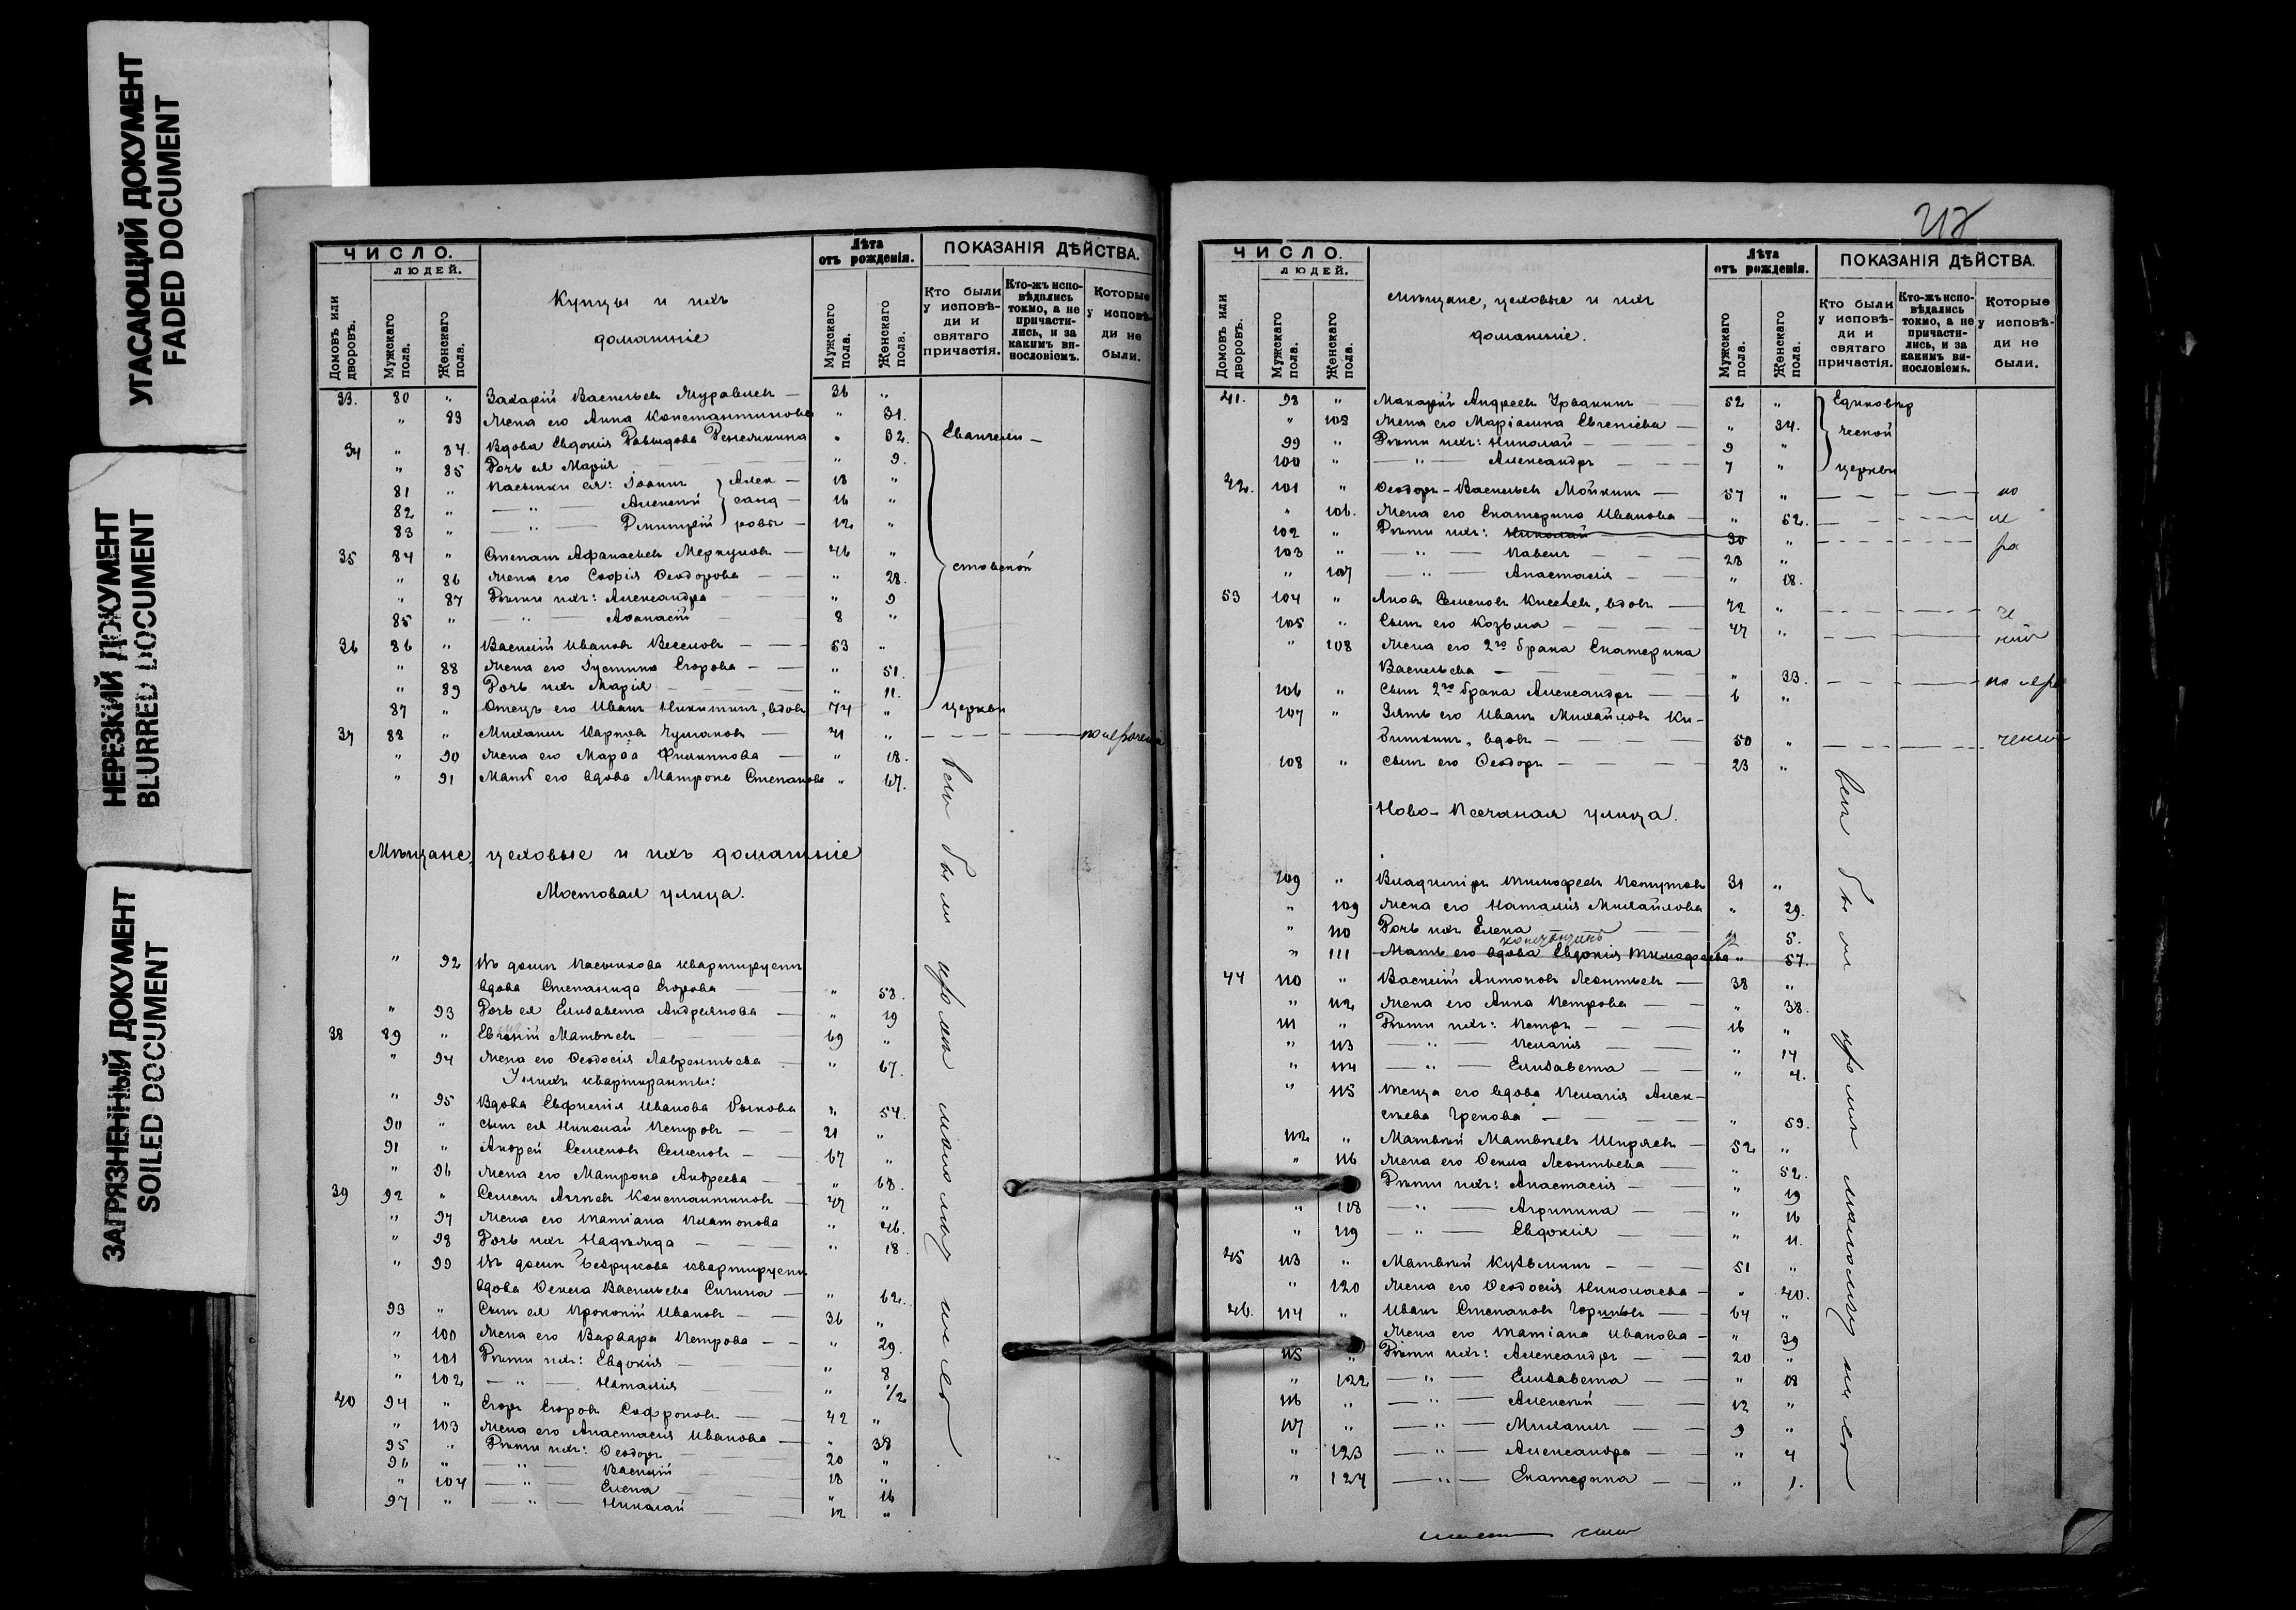 УГАСАЮЩИЙ ДОКУМЕНТ
FADED DOCUMENT
НЕРЕЗКИЙ ДОКУМЕНТ
BLURRED DOCUMENT
ЗАГРЯЗНЕННЫЙ ДОКУМЕНТ
SOILED DOCUMENT
ЧИСЛО.
ЛЮДЕЙ.
Домовъ или дворовъ.
Мужскаго пола.
Женскаго пола.
Купцы и ихъ
домашніе
Лѣта отъ рожденія.
Мужскаго пола.
Женскаго пола.
ПОКАЗАНІЯ ДѢЙСТВА.
Кто были у исповѣди и святаго причастія.
Кто-жъ исповѣдались токмо, а не причастились, и за какимъ винословіемъ.
Которые у исповѣди не были.
33. 80 " Захарій Васильевъ Муравьевъ — 36 "
" 83 Жена его Анна Константинова " 31.
34 " 84. Вдова Евдокія Давыдова " 32. Евангели —
" 85 Дочь ея Марія " 9.
81 " Пасынки ея: Іоаннъ } Алек — 18 "
82 " — " — Алексѣй } санд — 16 "
83 " — " — Димитрій } ровы — 12 "
35 84 " Степанъ Афанасьевъ Меркуловъ — 46 "
" 86 Жена его Софія Ѳеодорова — " 28. стовской
" 87 Дѣти ихъ: Александра " 9
85 " — " — Аѳанасій 8 "
36 86 " Василій Ивановъ Веселовъ — 53 "
" 88 Жена его Іустина Егорова — " 51.
" 89 Дочь ихъ Марія " 11.
87 " Отецъ его Иванъ Никитинъ, вдовъ 74 " церкви
37 88 " Михаилъ Карповъ Чумаковъ — 21 "
" 90 Жена его Марѳа Филиппова — " 18.
" 91 Мать его вдова Матрона Степанова " 67.
Мѣщане, цеховые и ихъ домашніе
Мостовая улица.
" 92 Въ домѣ Пасынкова квартируетъ
вдова Степанида Егорова " 58.
" 93 Дочь ея Елизавета Андреянова — " 19
38 89 " Евгеній Матвѣевъ 69 "
" 94 Жена его Ѳеодосія Лаврентьева " 67.
У нихъ квартиранты:
" 95 Вдова Евфимія Иванова " 54.
90 " сынъ ея Николай Петровъ — 21 "
91 " Андрей Семеновъ Семеновъ — 67 "
" 96 Жена его Матрона Андреева — " 68.
39 92 " Семенъ Константиновъ 47 "
" 97 Жена его Татіана Платонова " 46.
" 98 Дочь ихъ Надежда — " 18.
" 99 Въ домѣ Безрукова квартируетъ
вдова Ѳекла Васильева — " 62.
93 " Сынъ ея Прокопій Ивановъ — 36 "
" 100 Жена его Варвара Петрова — " 29.
" 101 Дѣти ихъ: Евдокія — " 8
" 102 — " — Наталія " 1/2
40 94 " Егоръ Егоровъ Софроновъ — 42 "
" 103 Жена его Анастасія Иванова — " 38
95 " Дѣти ихъ: Ѳеодоръ 20 "
96 " — " — Василій 18 "
" 104 — " — Елена " 16
97 " — " — Николай 12 "
всѣ были
ЧИСЛО.
ЛЮДЕЙ.
Домовъ или дворовъ.
Мужскаго пола.
Женскаго пола.
Мѣщане, цеховые и ихъ
домашніе.
Лѣта отъ рожденія.
Мужскаго пола.
Женскаго пола.
ПОКАЗАНІЯ ДѢЙСТВА.
Кто были у исповѣди и святаго причастія.
Кто-жъ исповѣдались токмо, а не причастились, и за какимъ винословіемъ.
Которые у исповѣди не были.
41. 98 " Макарій Андреевъ 52 " Единовѣр
" 105 Жена его Маріамна Евгеніева — " 34. ческой
99 " Дѣти ихъ: Николай — 9 "
100 " — " — Александръ — 7 " церкви
42. 101 " Ѳеодоръ Васильевъ Мойкинъ — 57 " по
" 106. Жена его Екатерина Иванова — " 52. не
102 " Дѣти ихъ: Николай 30 " ра
103 " — " — Павелъ 23 "
" 107 — " — Анастасія — " 18.
53 104 " Яковъ Семеновъ Киселевъ, вдовъ — 72 "
105 " Сынъ его Козьма 47 "
" 108 Жена его 2го брака Екатерина
Васильева — " 33.
106 " Сынъ 2го брака Александръ — 6 "
107 " Зять его Иванъ Михайловъ Ки-
биткинъ, вдовъ 50 "
108 " сынъ его Ѳеодоръ — 23 "
Ново-Песчаная улица.
109 " Владиміръ Тимофеевъ 31 "
" 109 Жена его Наталія Михайлова " 29.
" 110 Дочь ихъ Елена " 5.
" 111 Мать его вдова Евдокія Тимофеева " 57.
44 110 " Василій Антоновъ Леонтьевъ — 38 "
" 112 Жена его Анна Петрова — " 38.
111 " Дѣти ихъ: Петръ — 16 "
" 113 — " — Пелагія " 14
" 114 — " — Елизавета — " 4.
" 115 Теща его вдова Пелагія Алек-
сѣева Грекова — " 59.
112 " Матвѣй Матвѣевъ Ширяевъ — 52 "
" 116 Жена его Ѳекла Леонтьева — " 52.
Дѣти ихъ: Анастасія — " 19
" 118 — " — Агрипина — " 16
" 119 — " — Евдокія — " 11.
45 113 " Матвѣй Кузьминъ — 51 "
" 120 Жена его Ѳеодосія Николаева — " 40.
46. 114 " Иванъ Степановъ 64 "
Жена его Татіана Иванова — " 39
115 " Дѣти ихъ: Александръ — 20 "
" 122 — " — Елизавета — " 18
116 " — " — Алексѣй — 12 "
117 " — " — Михаилъ — 9 "
" 123 — " — Александра — " 4
" 124 — " — Екатерина — " 1.
всѣ были